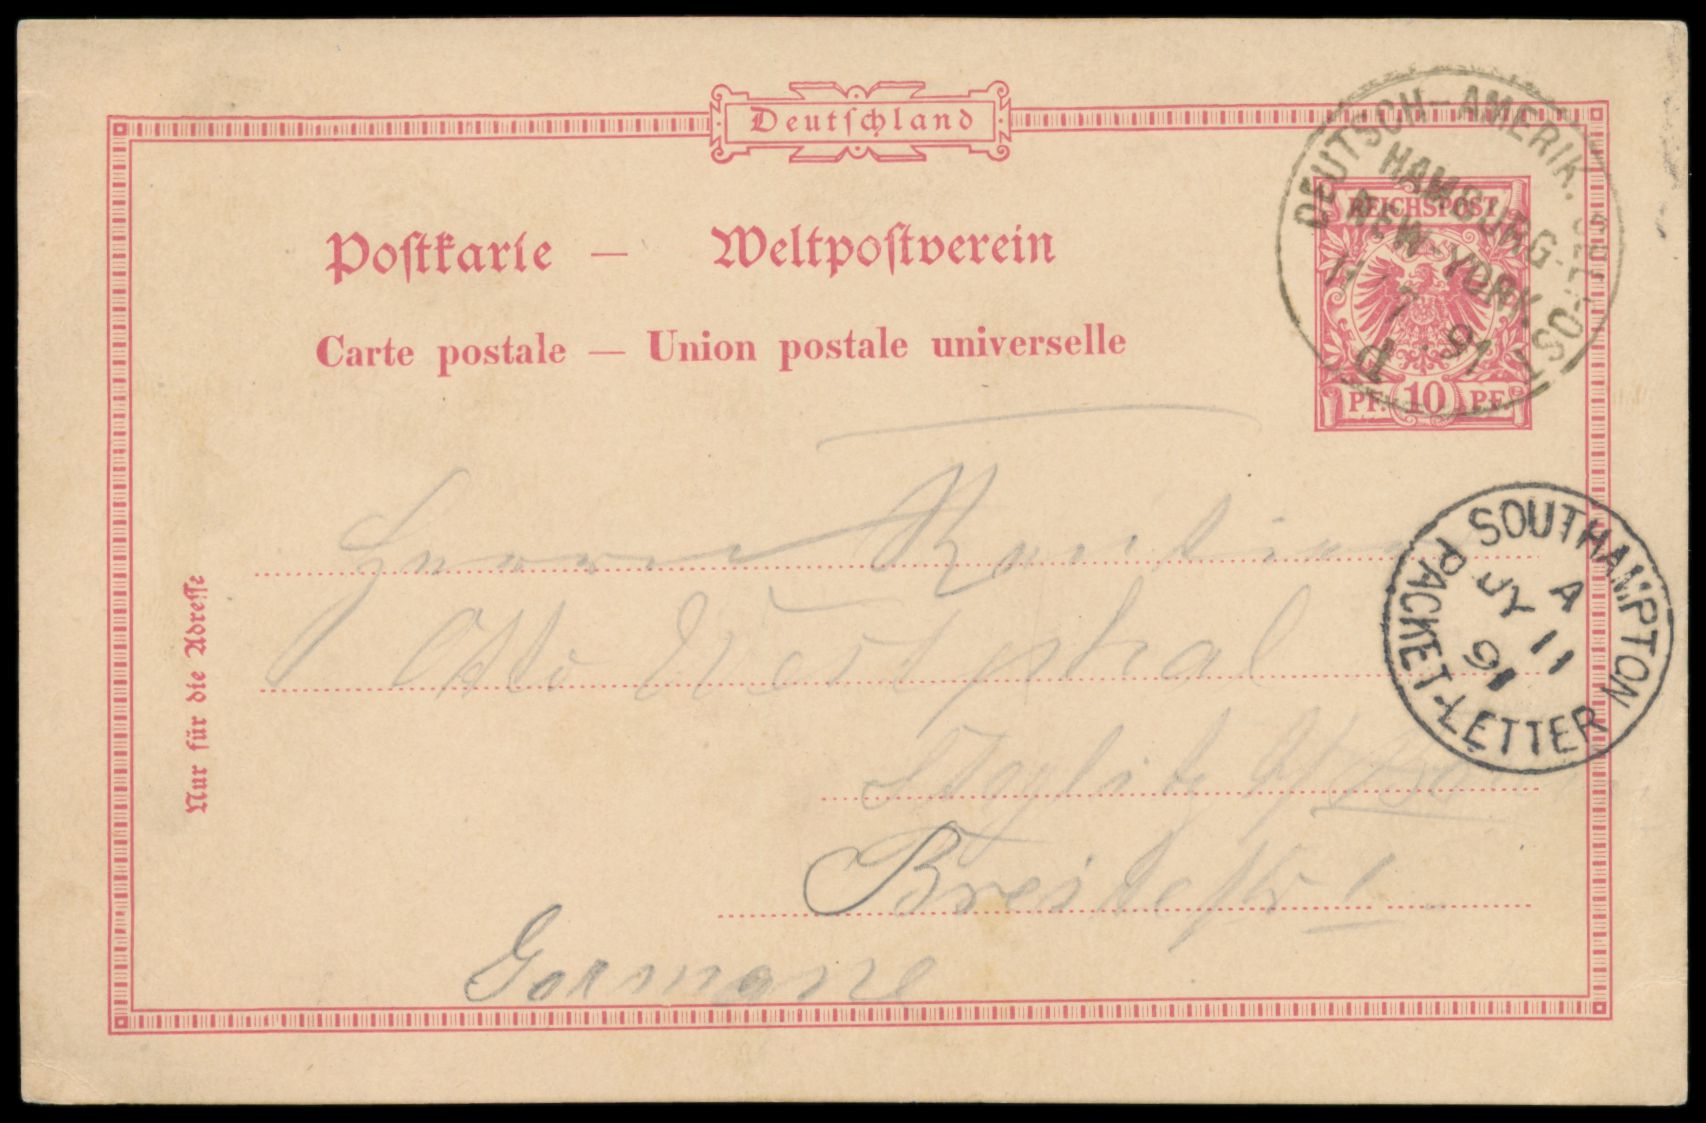 Deutschland
DEUTSCH-AMERIK. SEEPOST
HAMBURG-
NEW-YORK.
11 7 91
REICHSPOST
PF. 10 PF.
Postkarte — Weltpostverein
Carte postale — Union postale universelle
SOUTHAMPTON
A
JY 11
91
PACKET-LETTER
Nur für die Adresse
Herrn
Otto Westphal
Steglitz b/
Breitestr 1